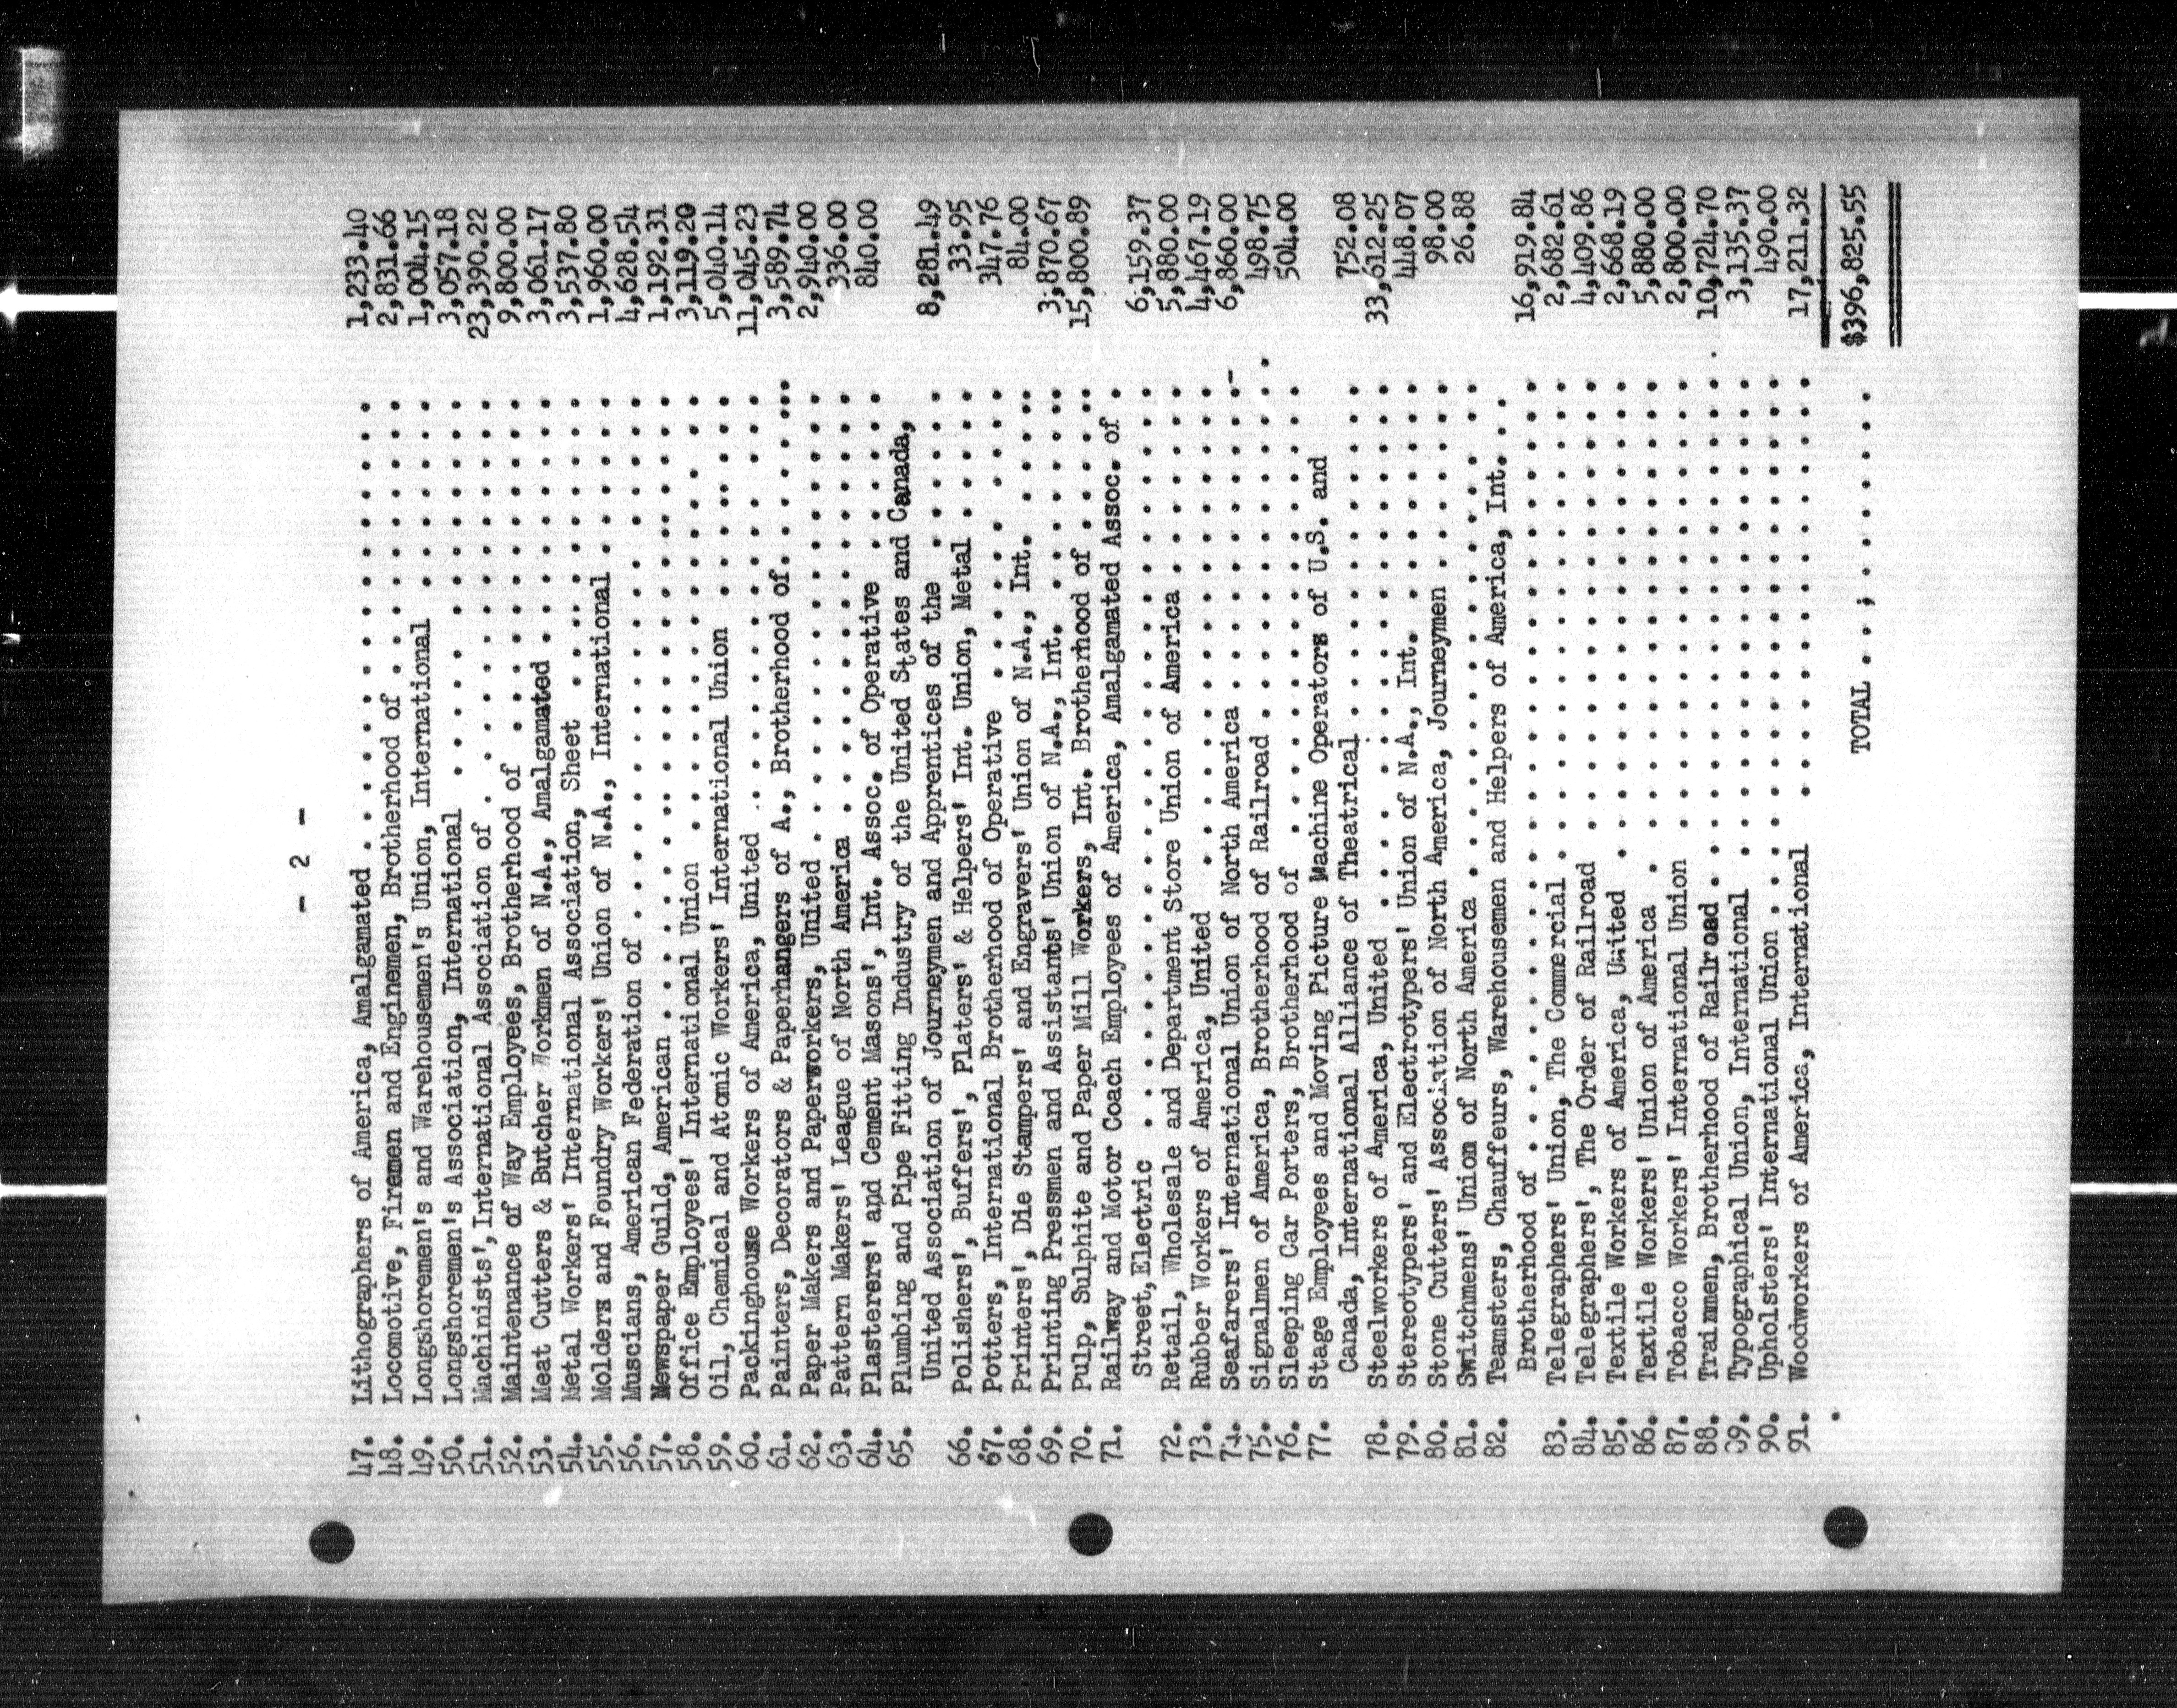 - 2 -
47. Lithographers of America, Amalgamated . . . . . . . . . . . . . . . . 1,233.40
48. Locomotive, Firemen and Enginemen, Brotherhood of . . . . . . . . . . 2,831.66
49. Longshoremen's and Warehousemen's Union, International . . . . . . . 1,004.15
50. Longshoremen's Association, International . . . . . . . . . . . . . . 3,057.18
51. Machinists', International Association of . . . . . . . . . . . . . . 23,390.22
52. Maintenance of Way Employees, Brotherhood of . . . . . . . . . . . . 9,800.00
53. Meat Cutters & Butcher Workmen of N.A., Amalgamated . . . . . . . . . 3,061.17
54. Metal Workers' International Association, Sheet . . . . . . . . . . . 3,537.80
55. Molders and Foundry Workers' Union of N.A., International . . . . . . 1,960.00
56. Muscians, American Federation of . . . . . . . . . . . . . . . . . . 4,628.54
57. Newspaper Guild, American . . . . . . . . . . . . . . . . . . . . . . 1,192.31
58. Office Employees' International Union . . . . . . . . . . . . . . . . 3,119.20
59. Oil, Chemical and Atomic Workers' International Union . . . . . . . . 5,040.14
60. Packinghouse Workers of America, United . . . . . . . . . . . . . . . 11,045.23
61. Painters, Decorators & Paperhangers of A., Brotherhood of. . . . . . 3,589.74
62. Paper Makers and Paperworkers, United . . . . . . . . . . . . . . . . 2,940.00
63. Pattern Makers' League of North America . . . . . . . . . . . . . . . 336.00
64. Plasterers' and Cement Masons', Int. Assoc. of Operative . . . . . . 840.00
65. Plumbing and Pipe Fitting Industry of the United States and Canada,
United Association of Journeymen and Apprentices of the . . . . . . 8,281.49
66. Polishers', Buffers', Platers' & Helpers' Int. Union, Metal . . . . . 33.95
67. Potters, International Brotherhood of Operative . . . . . . . . . . . 347.76
68. Printers', Die Stampers' and Engravers' Union of N.A., Int. . . . . . 84.00
69. Printing Pressmen and Assistants' Union of N.A., Int. . . . . . . . . 3,870.67
70. Pulp, Sulphite and Paper Mill Workers, Int. Brotherhood of . . . . . 15,800.89
71. Railway and Motor Coach Employees of America, Amalgamated Assoc. of .
Street, Electric . . . . . . . . . . . . . . . . . . . . . . . . . 6,159.37
72. Retail, Wholesale and Department Store Union of America . . . . . . . 5,880.00
73. Rubber Workers of America, United . . . . . . . . . . . . . . . . . . 4,467.19
74. Seafarers' International Union of North America . . . . . . . . . . . 6,860.00
75. Signalmen of America, Brotherhood of Railroad . . . . . . . . . . . . 498.75
76. Sleeping Car Porters, Brotherhood of . . . . . . . . . . . . . . . . 504.00
77. Stage Employees and Moving Picture Machine Operators of U.S. and
Canada, International Alliance of Theatrical . . . . . . . . . . . . 752.08
78. Steelworkers of America, United . . . . . . . . . . . . . . . . . . . 33,612.25
79. Stereotypers' and Electrotypers' Union of N.A., Int. . . . . . . . . 448.07
80. Stone Cutters' Association of North America, Journeymen . . . . . . . 98.00
81. Switchmens' Union of North America . . . . . . . . . . . . . . . . . 26.88
82. Teamsters, Chauffeurs, Warehousemen and Helpers of America, Int. . . .
Brotherhood of . . . . . . . . . . . . . . . . . . . . . . . . . . 16,919.84
83. Telegraphers' Union, The Commercial . . . . . . . . . . . . . . . . . 2,682.61
84. Telegraphers', The Order of Railroad . . . . . . . . . . . . . . . . 4,409.86
85. Textile Workers of America, United . . . . . . . . . . . . . . . . . 2,668.19
86. Textile Workers' Union of America . . . . . . . . . . . . . . . . . . 5,880.00
87. Tobacco Workers' International Union . . . . . . . . . . . . . . . . 2,800.00
88. Trainmen, Brotherhood of Railroad . . . . . . . . . . . . . . . . . . 10,724.70
89. Typographical Union, International . . . . . . . . . . . . . . . . . 3,135.37
90. Upholsters' International Union . . . . . . . . . . . . . . . . . . . 490.00
91. Woodworkers of America, International . . . . . . . . . . . . . . . . 17,211.32
TOTAL . . . ; . . . . . . . $396,825.55